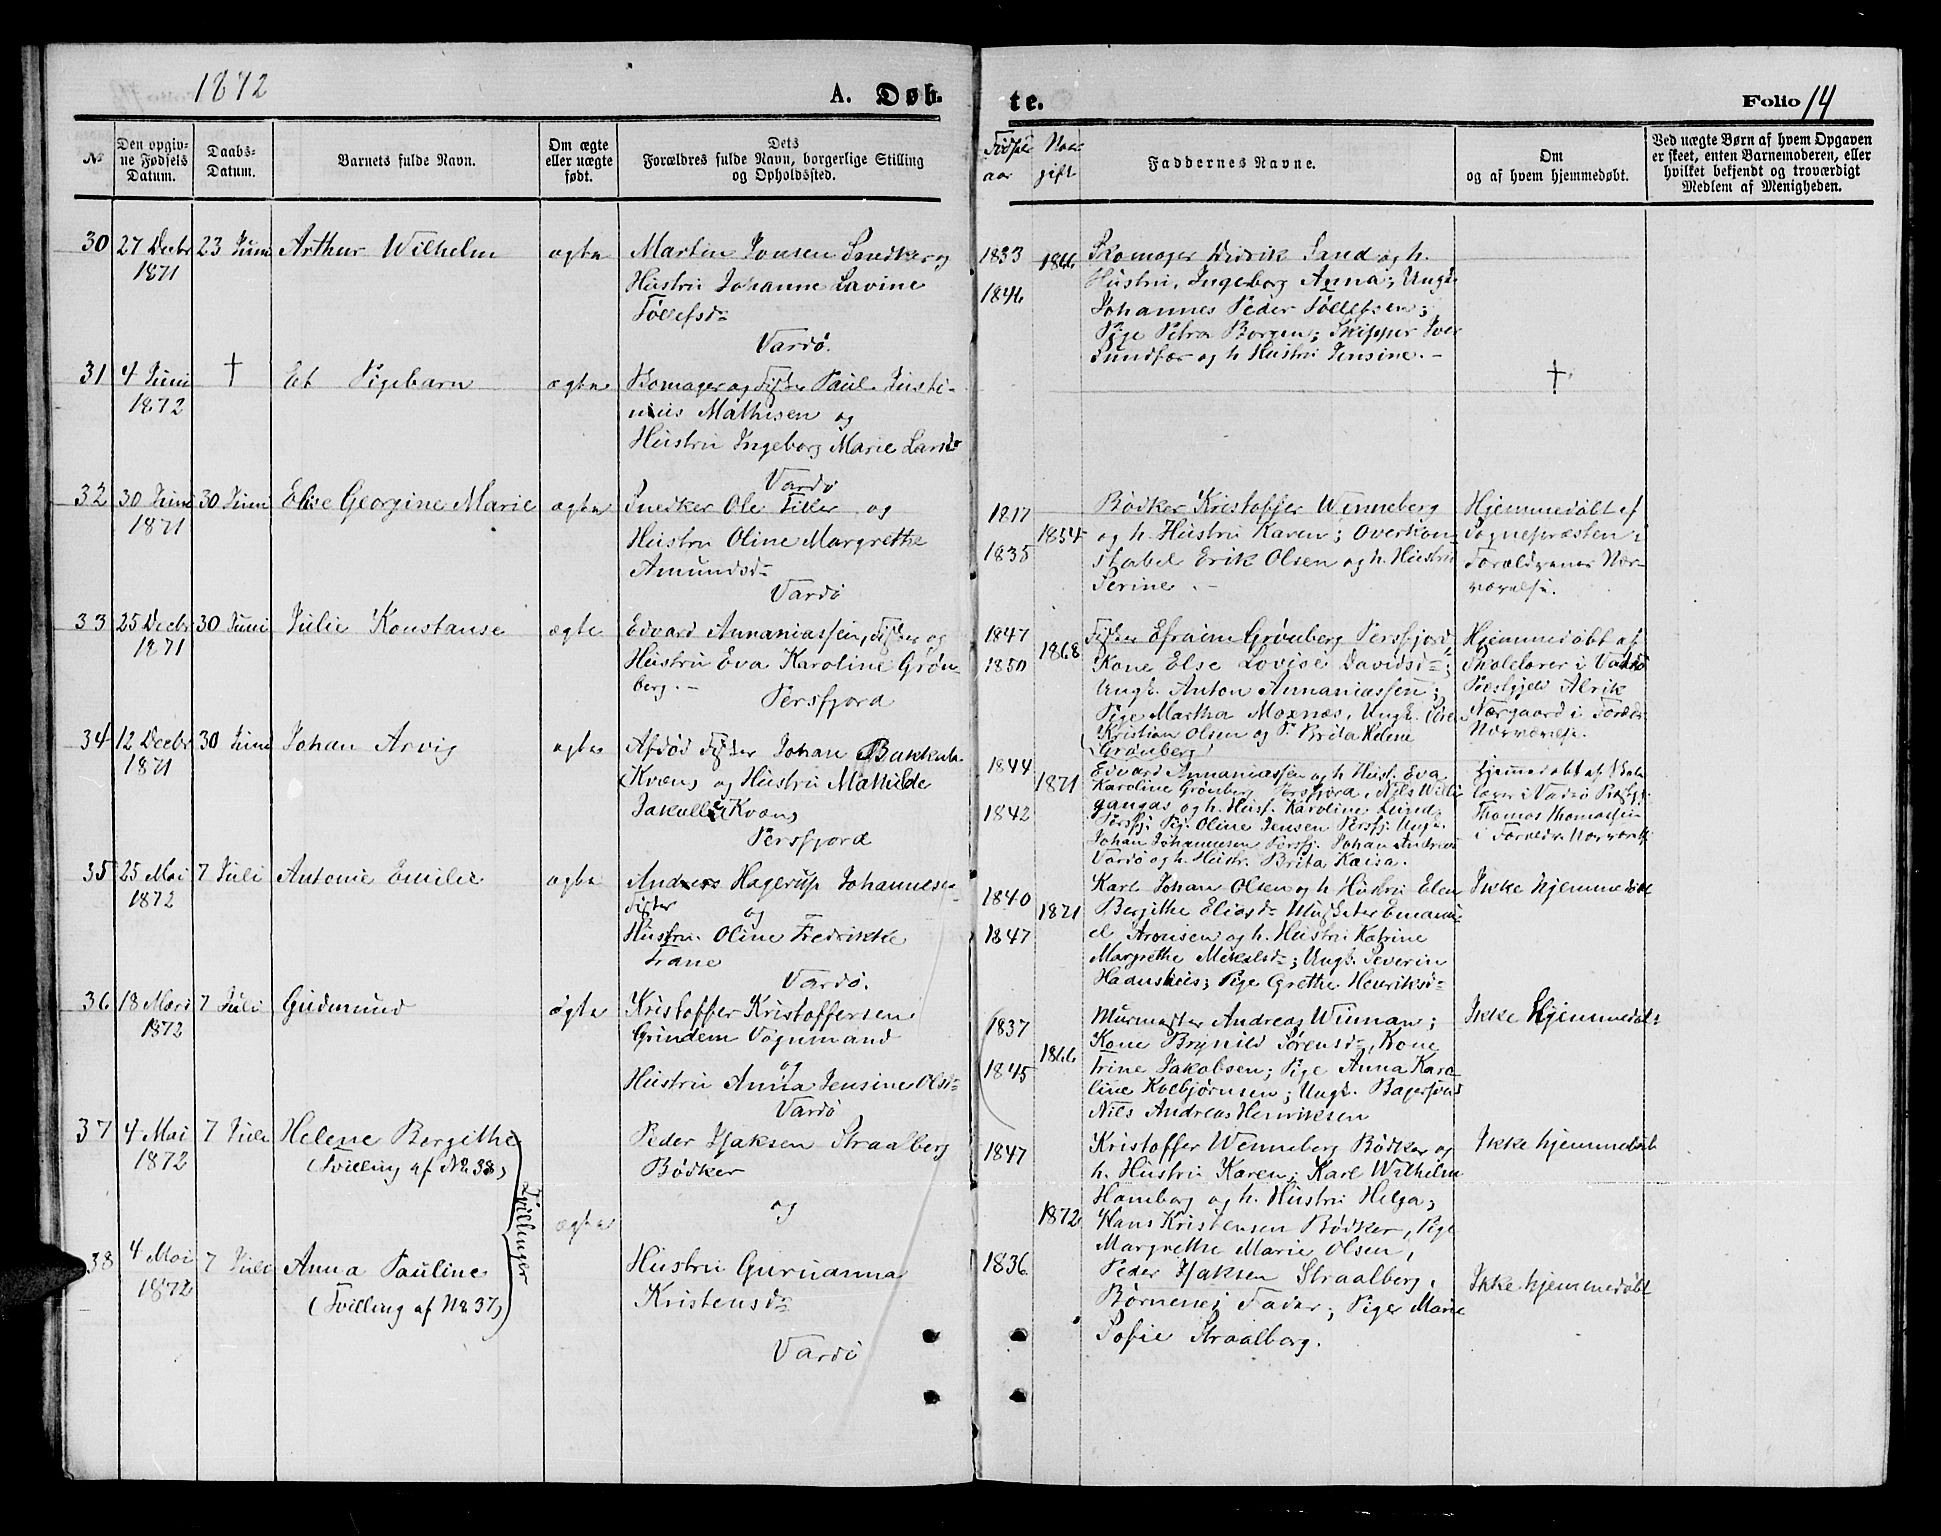 1872
A. Døb-
te.
Folio 14
No
Den opgiv-
ne Fødsels
Datum.
Daabs-
Datum.
Barnets fulde Navn.
Om ægte
eller uægte
født.
Dets
Forældres fulde Navn, borgerlige Stilling
og Opholdssted.
Fødsels
aar
gift
Faddernes Navne.
Om
og af hvem hjemmedøbt.
Ved uægte Børn af hvem Opgaven
er skeet, enten Barnemoderen, eller
hvilket bekjendt og troværdigt
Medlem af Menigheden.
30
27 Decbr
1871
23 Juni
Arthur Wilhelm
ægte
Martin Jonsen Snedker og
Hustru Johanne Lavine
Tollefsd=
Vardø.
1833
1846
1866
Skomager Didrik Sand og h.
Hustru, Ingeborg Anna; Ungk.
Johannes Peder Tollefsen;
Pige Petra Borgen; Skipper Iver
Sundfær og h Hustru Jensine. -
31
4 Juni
1872
†
Et Pigebarn
ægte
Bomager og Fisker Paul Justi-
nius Mathisen og
Hustru Ingeborg Marie Larsd=
Vardø
†
32
30 Juni
1871
30 Juni
Elise Georgine Marie
ægte
Snedker Ole Tiller og
Hustru Oline Margrethe
Amundsd=
Vardø
1817
1835
1854
Bødker Kristoffer Wenneberg
og h. Hustru Karen; Overkon-
stabel Erik Olsen og h. Hustru
Serine. -
Hjemmedøbt af
Sognepræsten i
Forældrenes Nær-
værelse.
33
25 Decbr
1871
30 Juni
Julie Konstanse
ægte
Edvard Annaniassen, Fisker og
Hustru Eva Karoline Grøn-
berg. -
Persfjord
1847
1850
1868
Fisker Efraim Grønberg Persfjord,
Kone Else Lovise Davidsd=;
Ungk. Anton Annaniassen;
Pige Martha Moxnæs, Ungk.
Kristian Olsen og P. Brita Helene
(Grønberg)
Hjemmedøbt af
Skolelærer i Vadsø
Præstgjeld Alrik
Nærgaard i Foræld.
Nærværelse.
34
12 Decbr
1871
30 Juni
Johan Arvig
ægte
Afdød Fisker Johan
(Kvæn) og Hustru Mathilde
(Kvæn)
Persfjord
1844
1842
1871
Edvard Annaniassen og h Hust. Eva
Karoline Grønberg Persfjord, Nils Willi-
gangas og h. Hust. Karoline
Persfj. Pig. Oline Jensen Persfj. Ungk.
Johan Johannesen Persfj. Johan Andreas
Vardø og h. Hustr. Brita Kaisa.
Hjemmedøbt af Skole-
lærer i Vadsø Præstgj.
Thomas Thomassen
i Forældr. Nærværelse
35
25 Mai
1872
7 Juli
Antonie Emilie
ægte
Anders Hagerup Johannesen
Fisker
og
Hustru Oline Fredrikke
Trane
Vardø.
1840
1847
1871
Karl Johan Olsen og h Hustru Elen
Bergithe Eliasd= Musketer Emanu-
el Aronsen og h. Hustru Katrine
Margrethe Mikalsd=; Ungk. Severin
Hadnsheis; Pige Grethe Henriksd=
Ikke hjemmedøbt
36
18 Mars
1872
7 Juli
Gudmund
ægte
Kristoffer Kristoffersen
Grindem Vognmand
og
Hustru Anna Jensine Olsd=
Vardø
1837
1845
1866
Murmester Andreas Winnan;
Kone Brynild Sørensd=, Kone
Trine Jakobsen; Pige Anna Karo-
line Kolbjørnsen; Ungk. Bagersvend
Nils Andreas Henriksen
Ikke Hjemmedøbt
37
4 Mai
1872
7 Juli
Helene Bergithe
(Tvilling af No 38)
Tvillinger
ægte
Peder Isaksen Straalberg
Bødker
og
1847
1872
Kristoffer Wenneberg Bødker og
h. Hustru Karen; Karl Wilhelm
Hamborg og h. Hustru Helga;
Hans Kristensen Bødker, Pige
Margrethe Marie Olsen,
Ikke hjemmedøbt
38
4 Mai
1872
7 Juli
Anna Pauline
(Tvilling af No 37)
Hustru Gurudanna
Kristensd=
Vardø
1836
Peder Isaksen Straalberg,
Børnenes Fader; Pige Marie
Sofie Straalberg.
Ikke hjemmedøbt